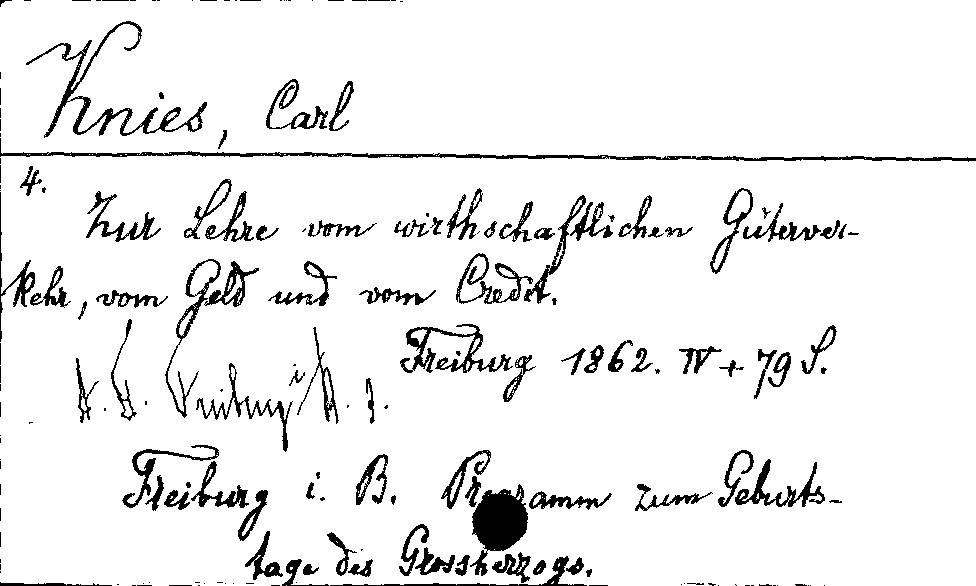 Knies, Carl
4.
Zur Lehre vom wirthschaftlichen Güterver-
kehr, vom Geld und vom Credit.
Freiburg 1862. IV + 79 S.
Freiburg i. B. Programm zum Geburts-
tage des Grossherzogs.